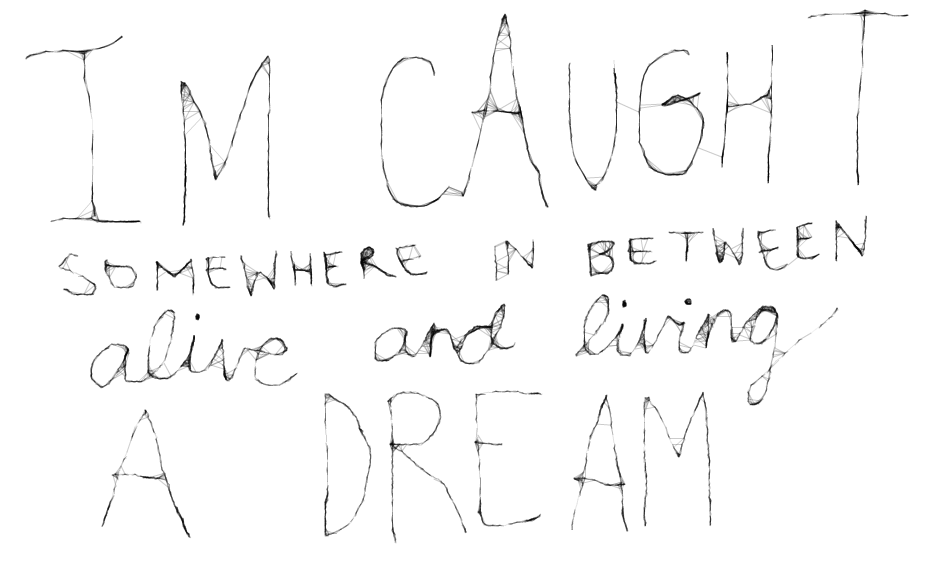 IM CAUGHT
SOMEWHERE IN BETWEEN
alive and living
A DREAM